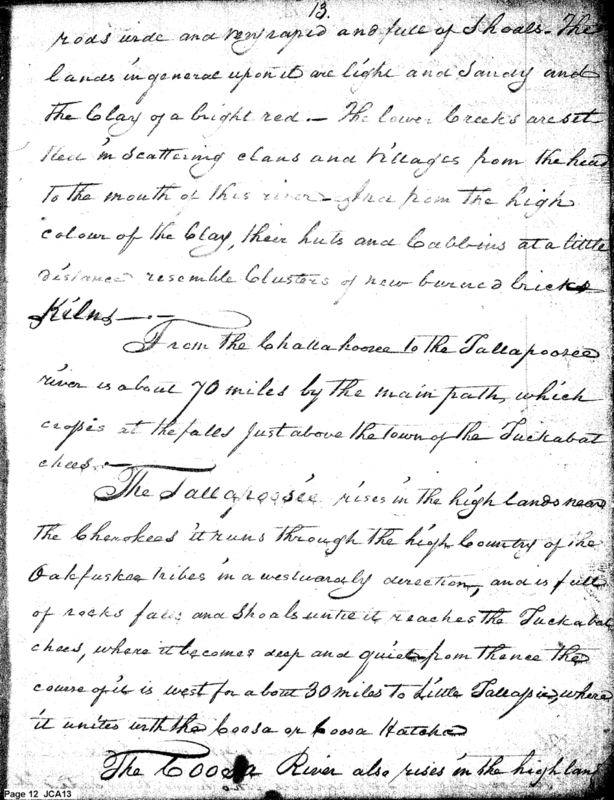 13.
rods wide and very rapid and full of Shoals. The
lands in general upon it are light and Sandy and
the Clay of a bright red. — The lower Creeks are set
tled in Scattering clans and Villages from the head
to the mouth of this river — And from the high
colour of the Clay, their huts and Cabbins at a little
distance resemble Clusters of new burned brick
Kilns —
From the Chattahoosee to the Tallapoosee
river is about 70 miles by the main path, which
crosses at the falls Just above the town of the Tuckabat
chees.
The Tallapoosee rises in the high lands near
the Cherokees it runs through the high Country of the
Oakfuskee tribes in a westwardly direction, and is full
of rocks falls and Shoals until it reaches the Tuckabat
chees, where it becomes deep and quiet from thence the
course of it is west for about 30 miles to Little Tallassie, where
it unites with the Coosa or Coosa Hatcha
The Coosa River also rises in the high lan
Page 12 JCA13